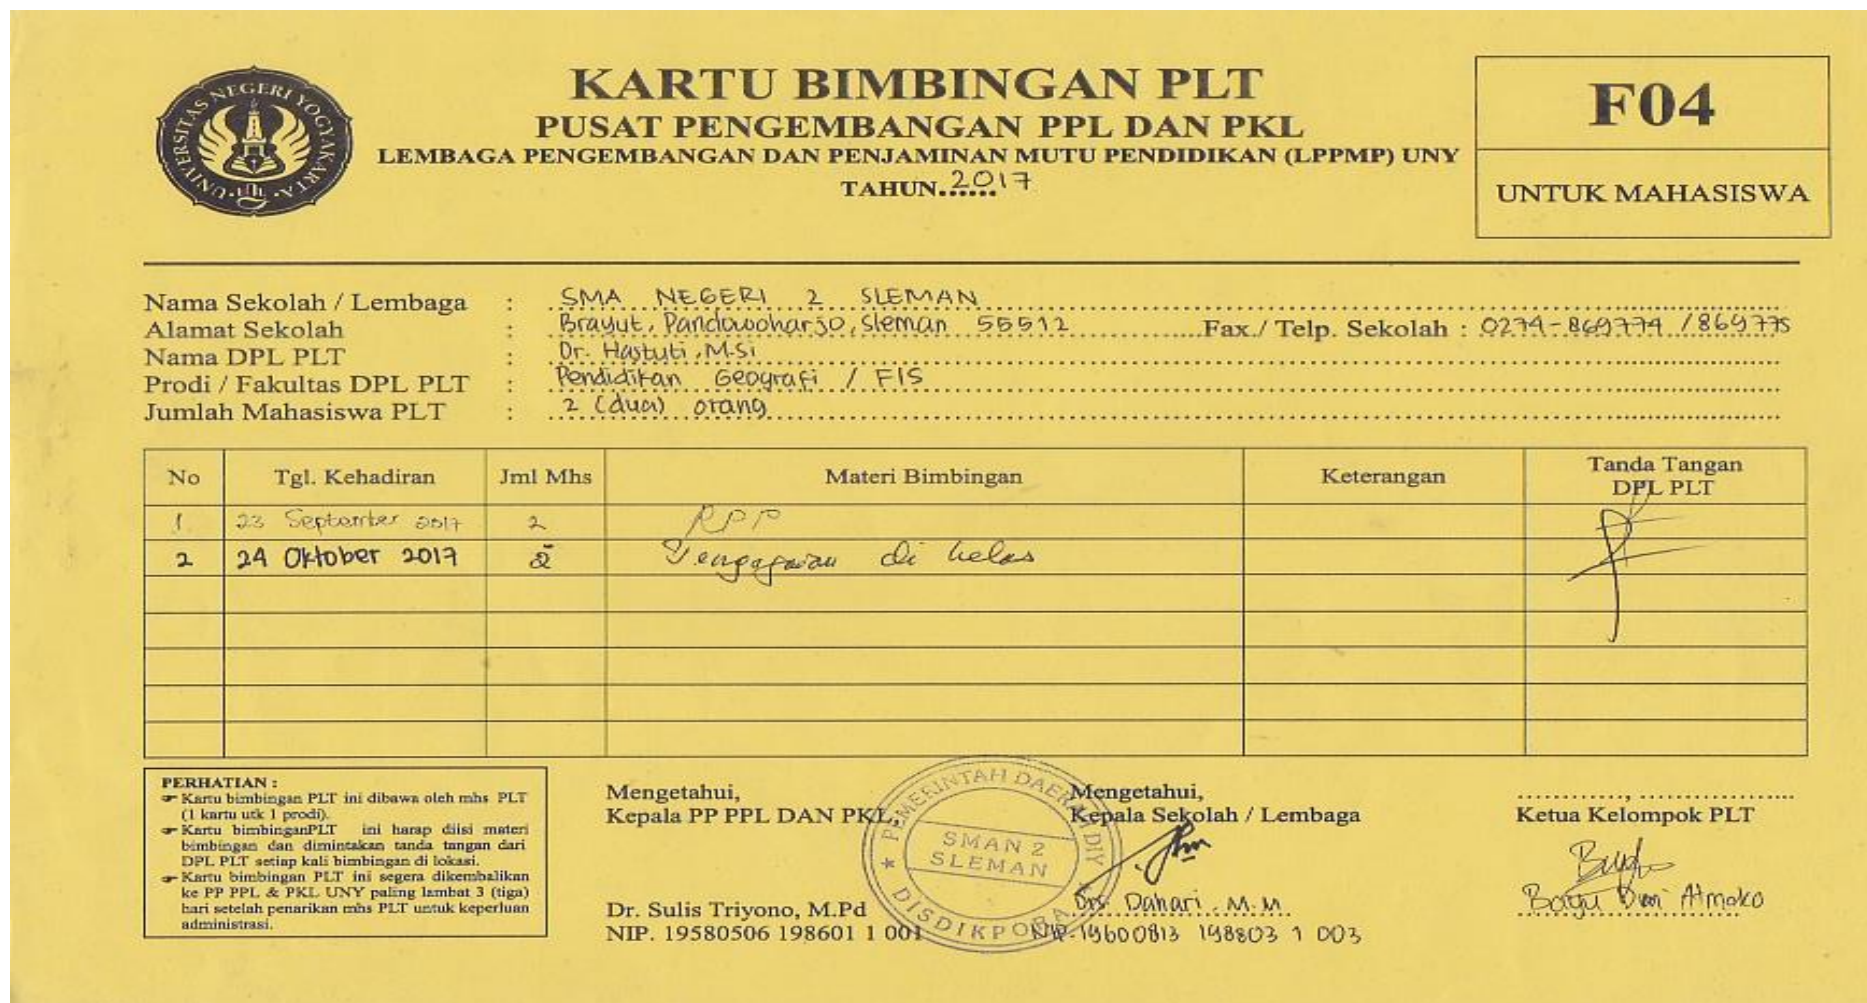 UNIVERSITAS NEGERI YOGYAKARTA
KARTU BIMBINGAN PLT
PUSAT PENGEMBANGAN PPL DAN PKL
LEMBAGA PENGEMBANGAN DAN PENJAMINAN MUTU PENDIDIKAN (LPPMP) UNY
TAHUN 2017
F04
UNTUK MAHASISWA
Nama Sekolah / Lembaga : SMA NEGERI 2 SLEMAN
Alamat Sekolah : Brayut, Pandowoharjo, Sleman 55512 Fax./ Telp. Sekolah : 0274-869774 / 869775
Nama DPL PLT : Dr. Hastuti, M.Si
Prodi / Fakultas DPL PLT : Pendidikan Geografi / FIS
Jumlah Mahasiswa PLT : 2 (dua) orang
No Tgl. Kehadiran Jml Mhs Materi Bimbingan Keterangan Tanda Tangan DPL PLT
1. 23 September 2017 2 RPP
2 24 Oktober 2017 2 di kelas
PERHATIAN :
☞ Kartu bimbingan PLT ini dibawa oleh mhs PLT
(1 kartu utk 1 prodi).
☞ Kartu bimbinganPLT ini harap diisi materi
bimbingan dan dimintakan tanda tangan dari
DPL PLT setiap kali bimbingan di lokasi.
☞ Kartu bimbingan PLT ini segera dikembalikan
ke PP PPL & PKL UNY paling lambat 3 (tiga)
hari setelah penarikan mhs PLT untuk keperluan
administrasi.
Mengetahui,
Kepala PP PPL DAN PKL,
Dr. Sulis Triyono, M.Pd
NIP. 19580506 198601 1 001
PEMERINTAH DAERAH DIY
SMAN 2
SLEMAN
DISDIKPORA
Mengetahui,
Kepala Sekolah / Lembaga
Drs. Dahari, M.M.
NIP. 19600813 198803 1 003
Ketua Kelompok PLT
Atmoko